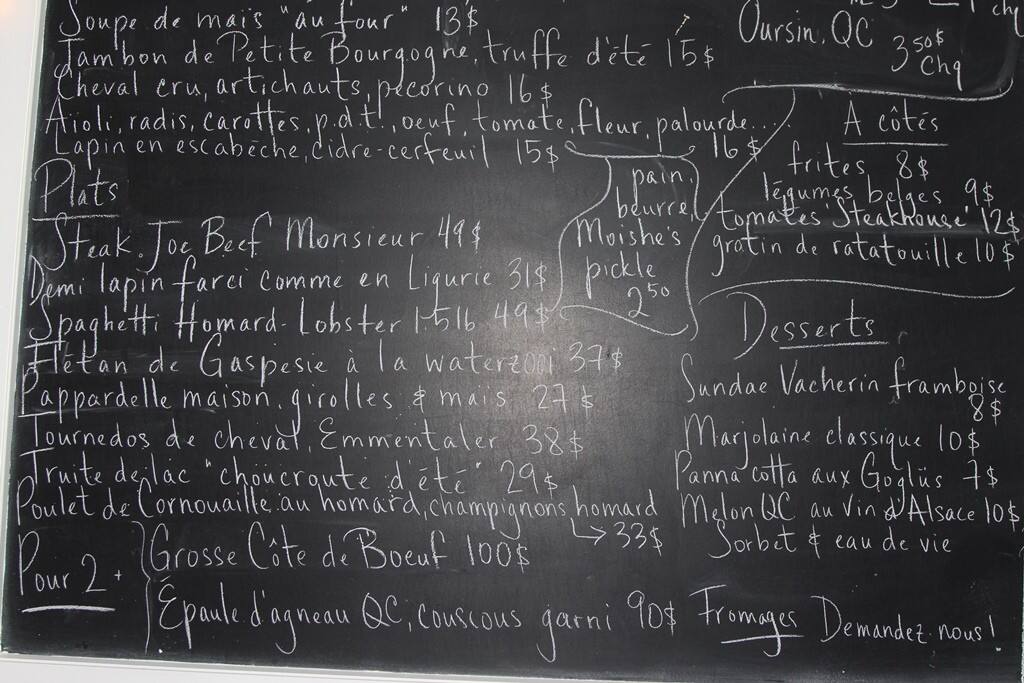 Soupe de maïs "au four" 13$
Jambon de Petite Bourgogne, truffe d'été 15$
Cheval cru, artichauts, pecorino 16$
Aïoli, radis, carottes, p.d.t., oeuf, tomate, fleur, palourde....
16$
Lapin en escabèche, cidre-cerfeuil 15$
Plats
Steak Joe Beef Monsieur 49$
Demi lapin farci comme en Ligurie 31$
Spaghetti Homard-Lobster 1.5lb 49$
Flétan de Gaspesie à la waterzooi 37$
Pappardelle maison, girolles & maïs 27$
Tournedos de cheval, Emmentaler 38$
Truite de lac "choucroute d'été" 29$
Poulet de Cornouaille au homard, champignons homard
→33$
Pour 2+
Grosse Côte de Boeuf 100$
Épaule d'agneau QC, couscous garni 90$
pain,
beurre,
Moishe's
pickle
2 50
chq
Oursin, QC
3 50$
chq
A côtés
frites 8$
légumes belges 9$
tomates Steakhouse 12$
gratin de ratatouille 10$
Desserts
Sundae Vacherin framboise
8$
Marjolaine classique 10$
Panna cotta aux Goglüs 7$
Melon QC au vin d'Alsace 10$
Sorbet & eau de vie
Fromages Demandez nous!